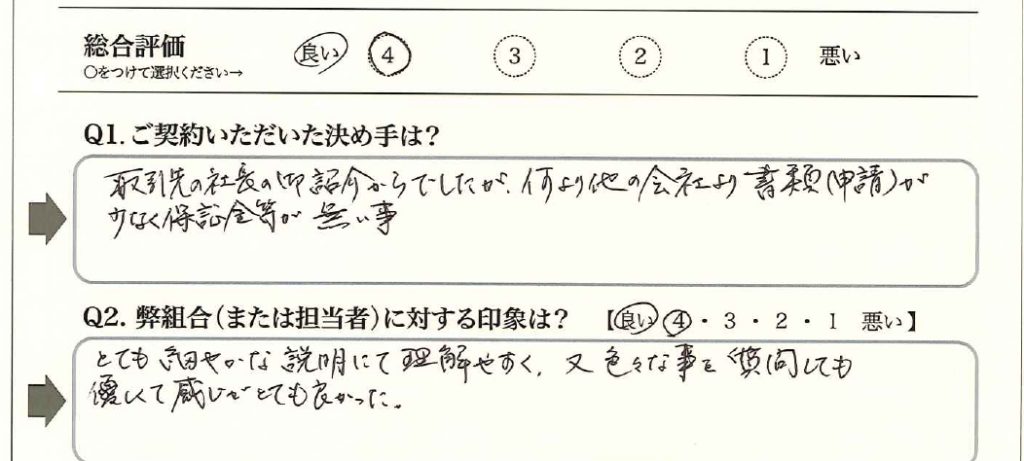 総合評価 良い 4 3 2 1 悪い
○をつけて選択ください→
Q1. ご契約いただいた決め手は？
取引先の社長の御紹介からでしたが、何より他の会社より書類(申請)が
少なく保証金等が無い事
Q2. 弊組合(または担当者)に対する印象は？ 【良い 4・3・2・1 悪い】
とても細やかな説明にて理解やすく、又色々な事を質問しても
優しくて感じがとても良かった。